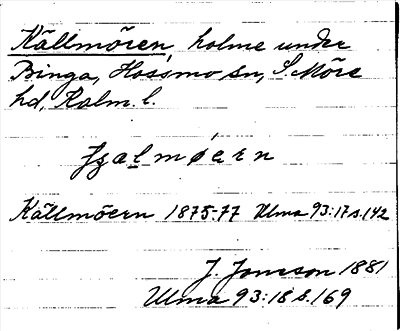 Källmören, holme under
Binga, Hossmo sn, S. Möre
hd, Kalm. l.
Källmöern 1875-77 Ulma 93:17 s.142
J. Jonsson 1881
Ulma 93:18 s.169